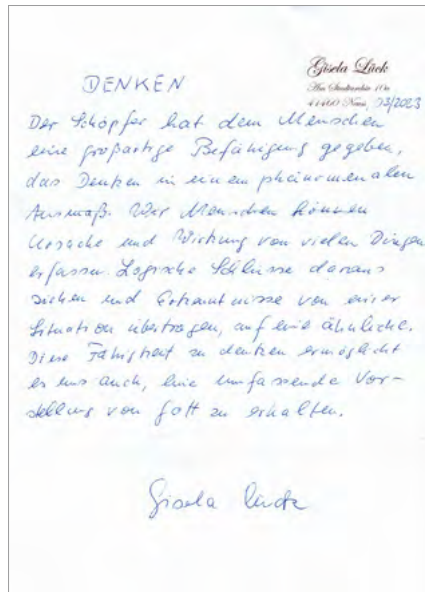 Gisela Lück
Am Stadtarchiv 10a
41460 Neuss, 03/2023
DENKEN
Der Schöpfer hat dem Menschen
eine großartige Befähigung gegeben,
das Denken in einem phänomenalen
Ausmaß. Wir Menschen können
Ursache und Wirkung von vielen Dingen
erfassen. Logische Schlüsse daraus
ziehen und Erkenntnisse von einer
Situation übertragen, auf eine ähnliche.
Diese Fähigkeit zu denken ermöglicht
es uns auch, eine umfassende Vor-
stellung von Gott zu erhalten.
Gisela Lück